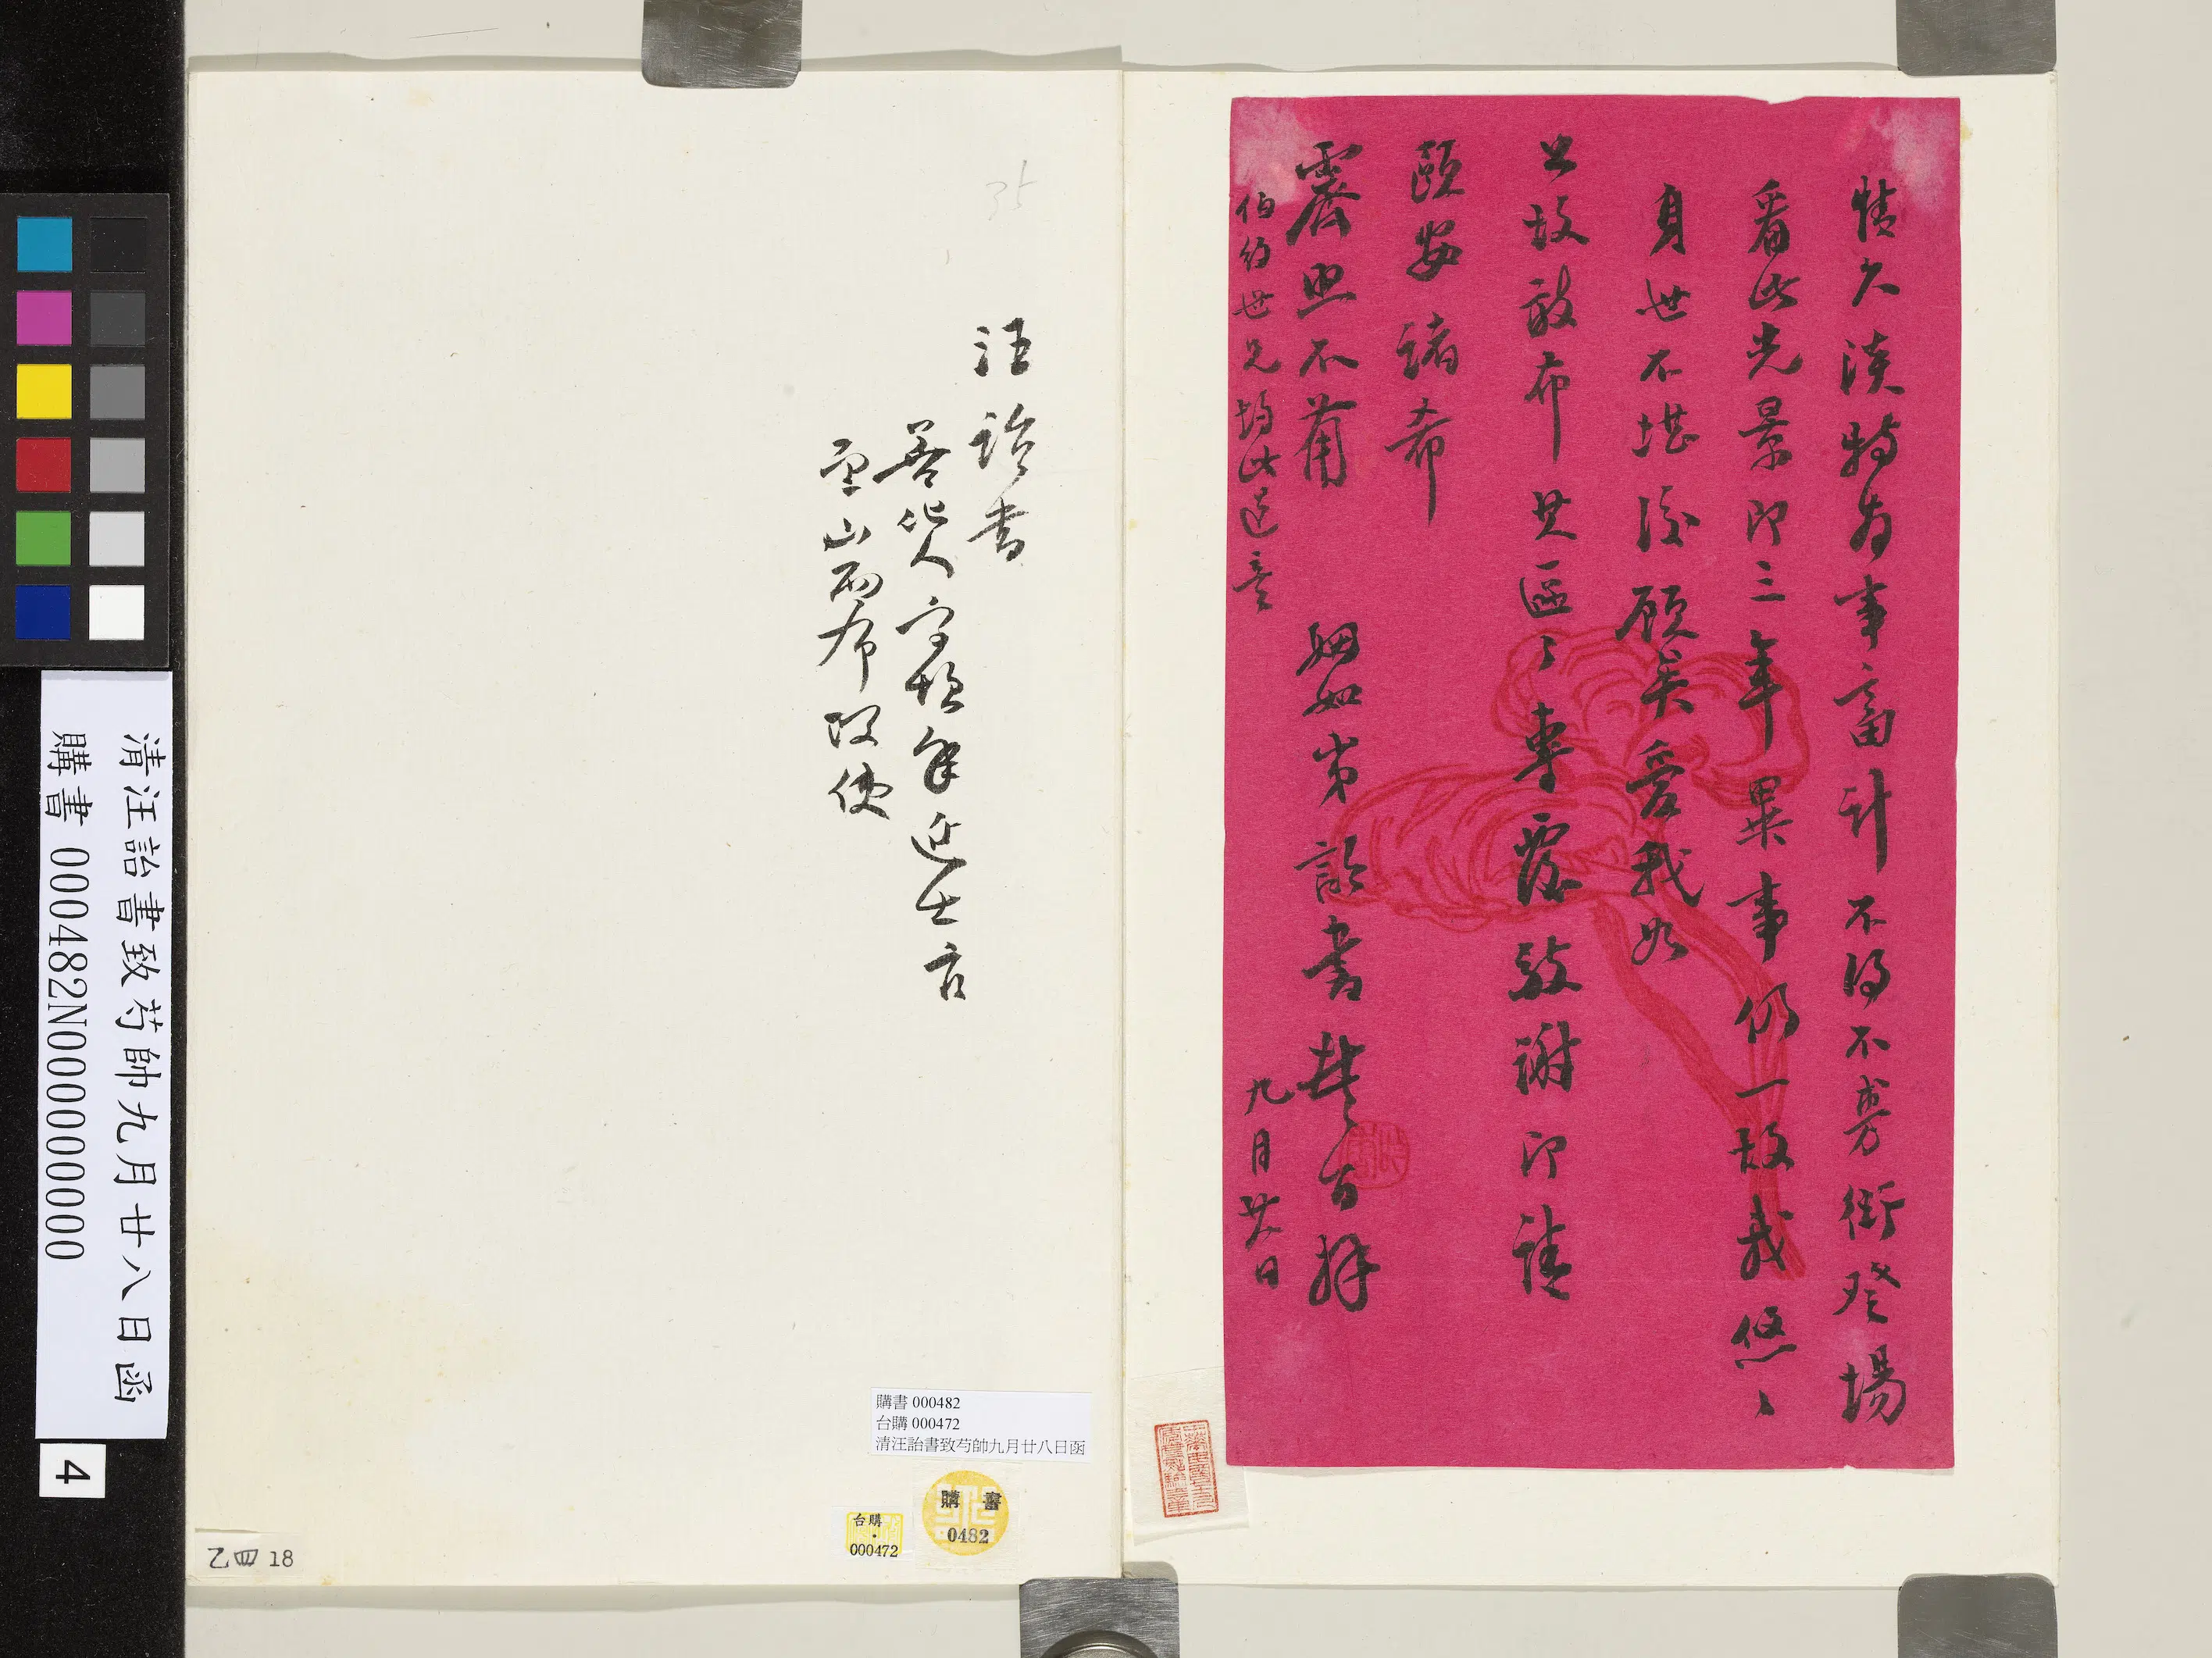 情久淡特為事畜計不得不專衙登場
看此光景即三年畢事仍一故我悠々
身世不堪後顧矣愛我如
公故敢布其區々專覆致謝即請
頤安諸希
霽照不莆
姻如弟詒書頓首百拜
伯約世兄均此道意
九月廿八日
汪詒書
善化人字頌年進士官
至山西布政使
35
清汪詒書致芍帥九月廿八日函
購書 000482N000000000
4
購書 000482
台購 000472
清汪詒書致芍帥九月廿八日函
購書
0482
台購
000472
乙四 18